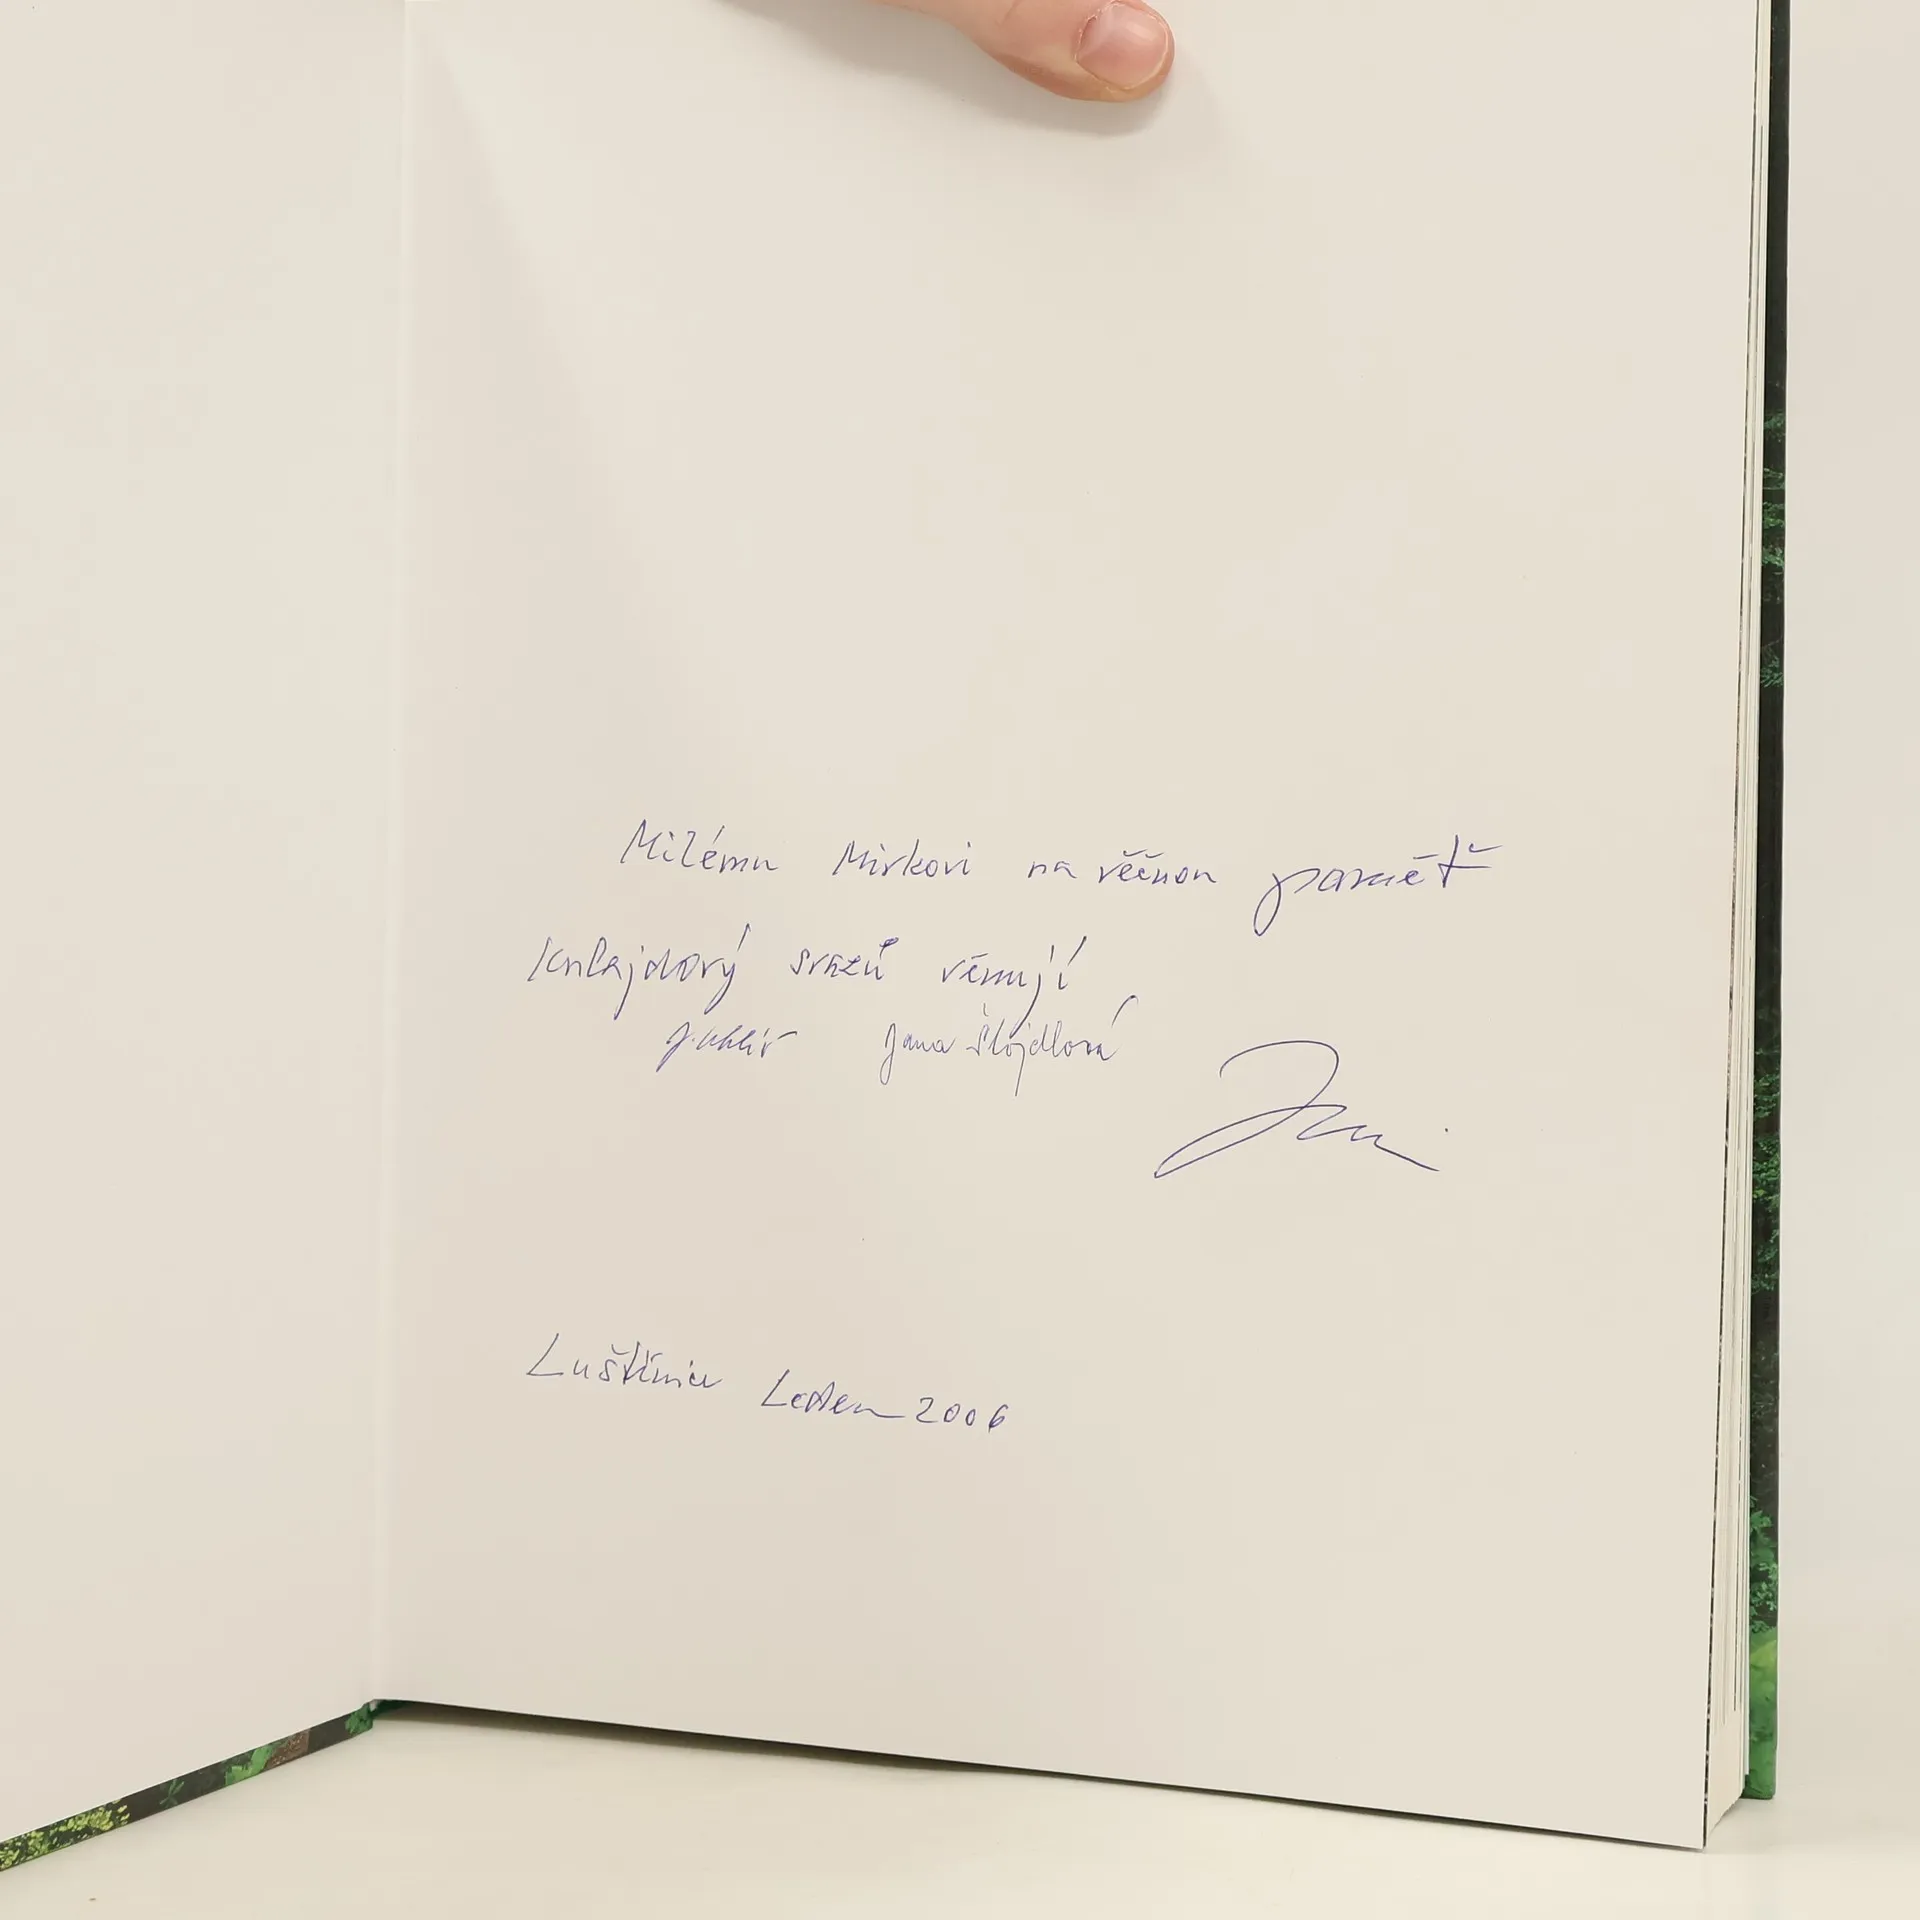 Milému Mirkovi na věčnou paměť
Kulajdový svazů věnují
J. Uhlíř Jana Šlojdlová
Luštěnice Leden 2006